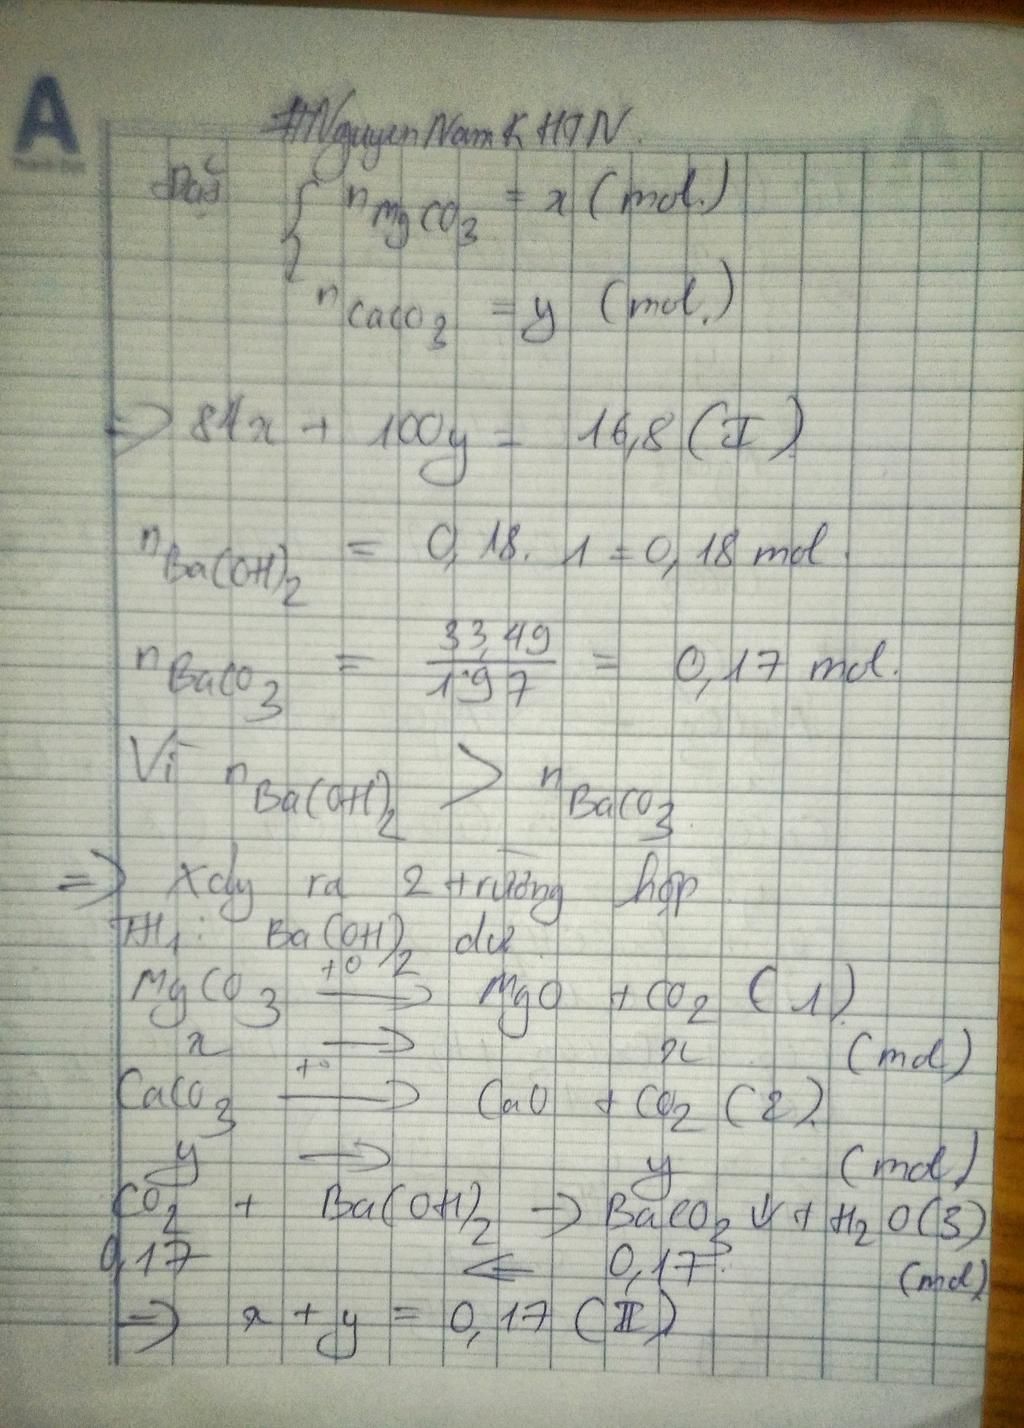 A
#NguyenNamKHTN.
Đặt { nMgCO3 = x (mol.)
nCaCO3 = y (mol.)
=> 84x + 100y = 16,8 (I)
nBa(OH)2 = 0,18. 1 = 0,18 mol.
nBaCO3 = 33,49/197 = 0,17 mol.
Vì nBa(OH)2 > nBaCO3
=> Xảy ra 2 trường hợp
TH1: Ba(OH)2 dư
MgCO3 t° → MgO + CO2 (1)
x → x (mol)
CaCO3 t° → CaO + CO2 (2)
y → y (mol)
CO2 + Ba(OH)2 → BaCO3 ↓ + H2O (3)
0,17 ← 0,17 (mol)
=> x + y = 0,17 (II)